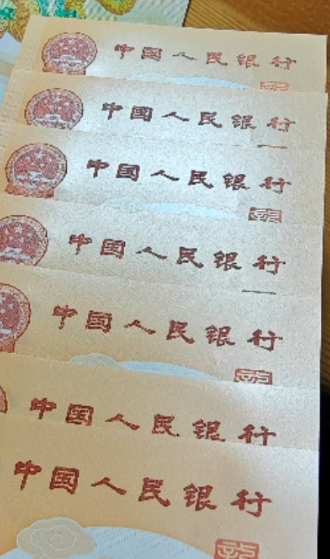 中国人民银行
中国人民银行
中国人民银行
中国人民银行
中国人民银行
中国人民银行
中国人民银行